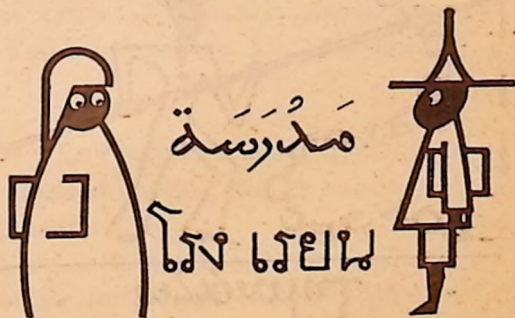 مَدُرَسَة
โรง เรยน